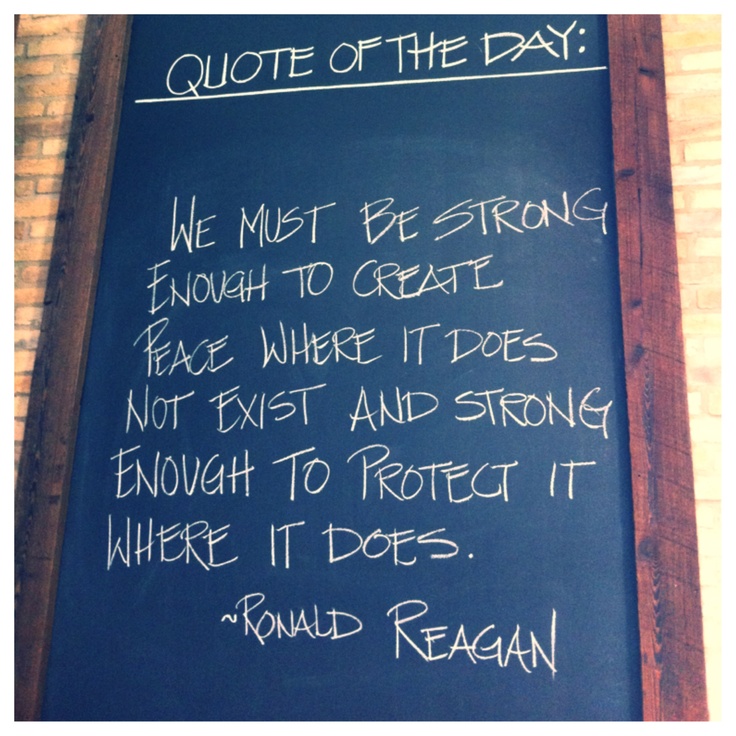 QUOTE OF THE DAY:
WE MUST BE STRONG
ENOUGH TO CREATE
PEACE WHERE IT DOES
NOT EXIST AND STRONG
ENOUGH TO PROTECT IT
WHERE IT DOES.
~RONALD REAGAN